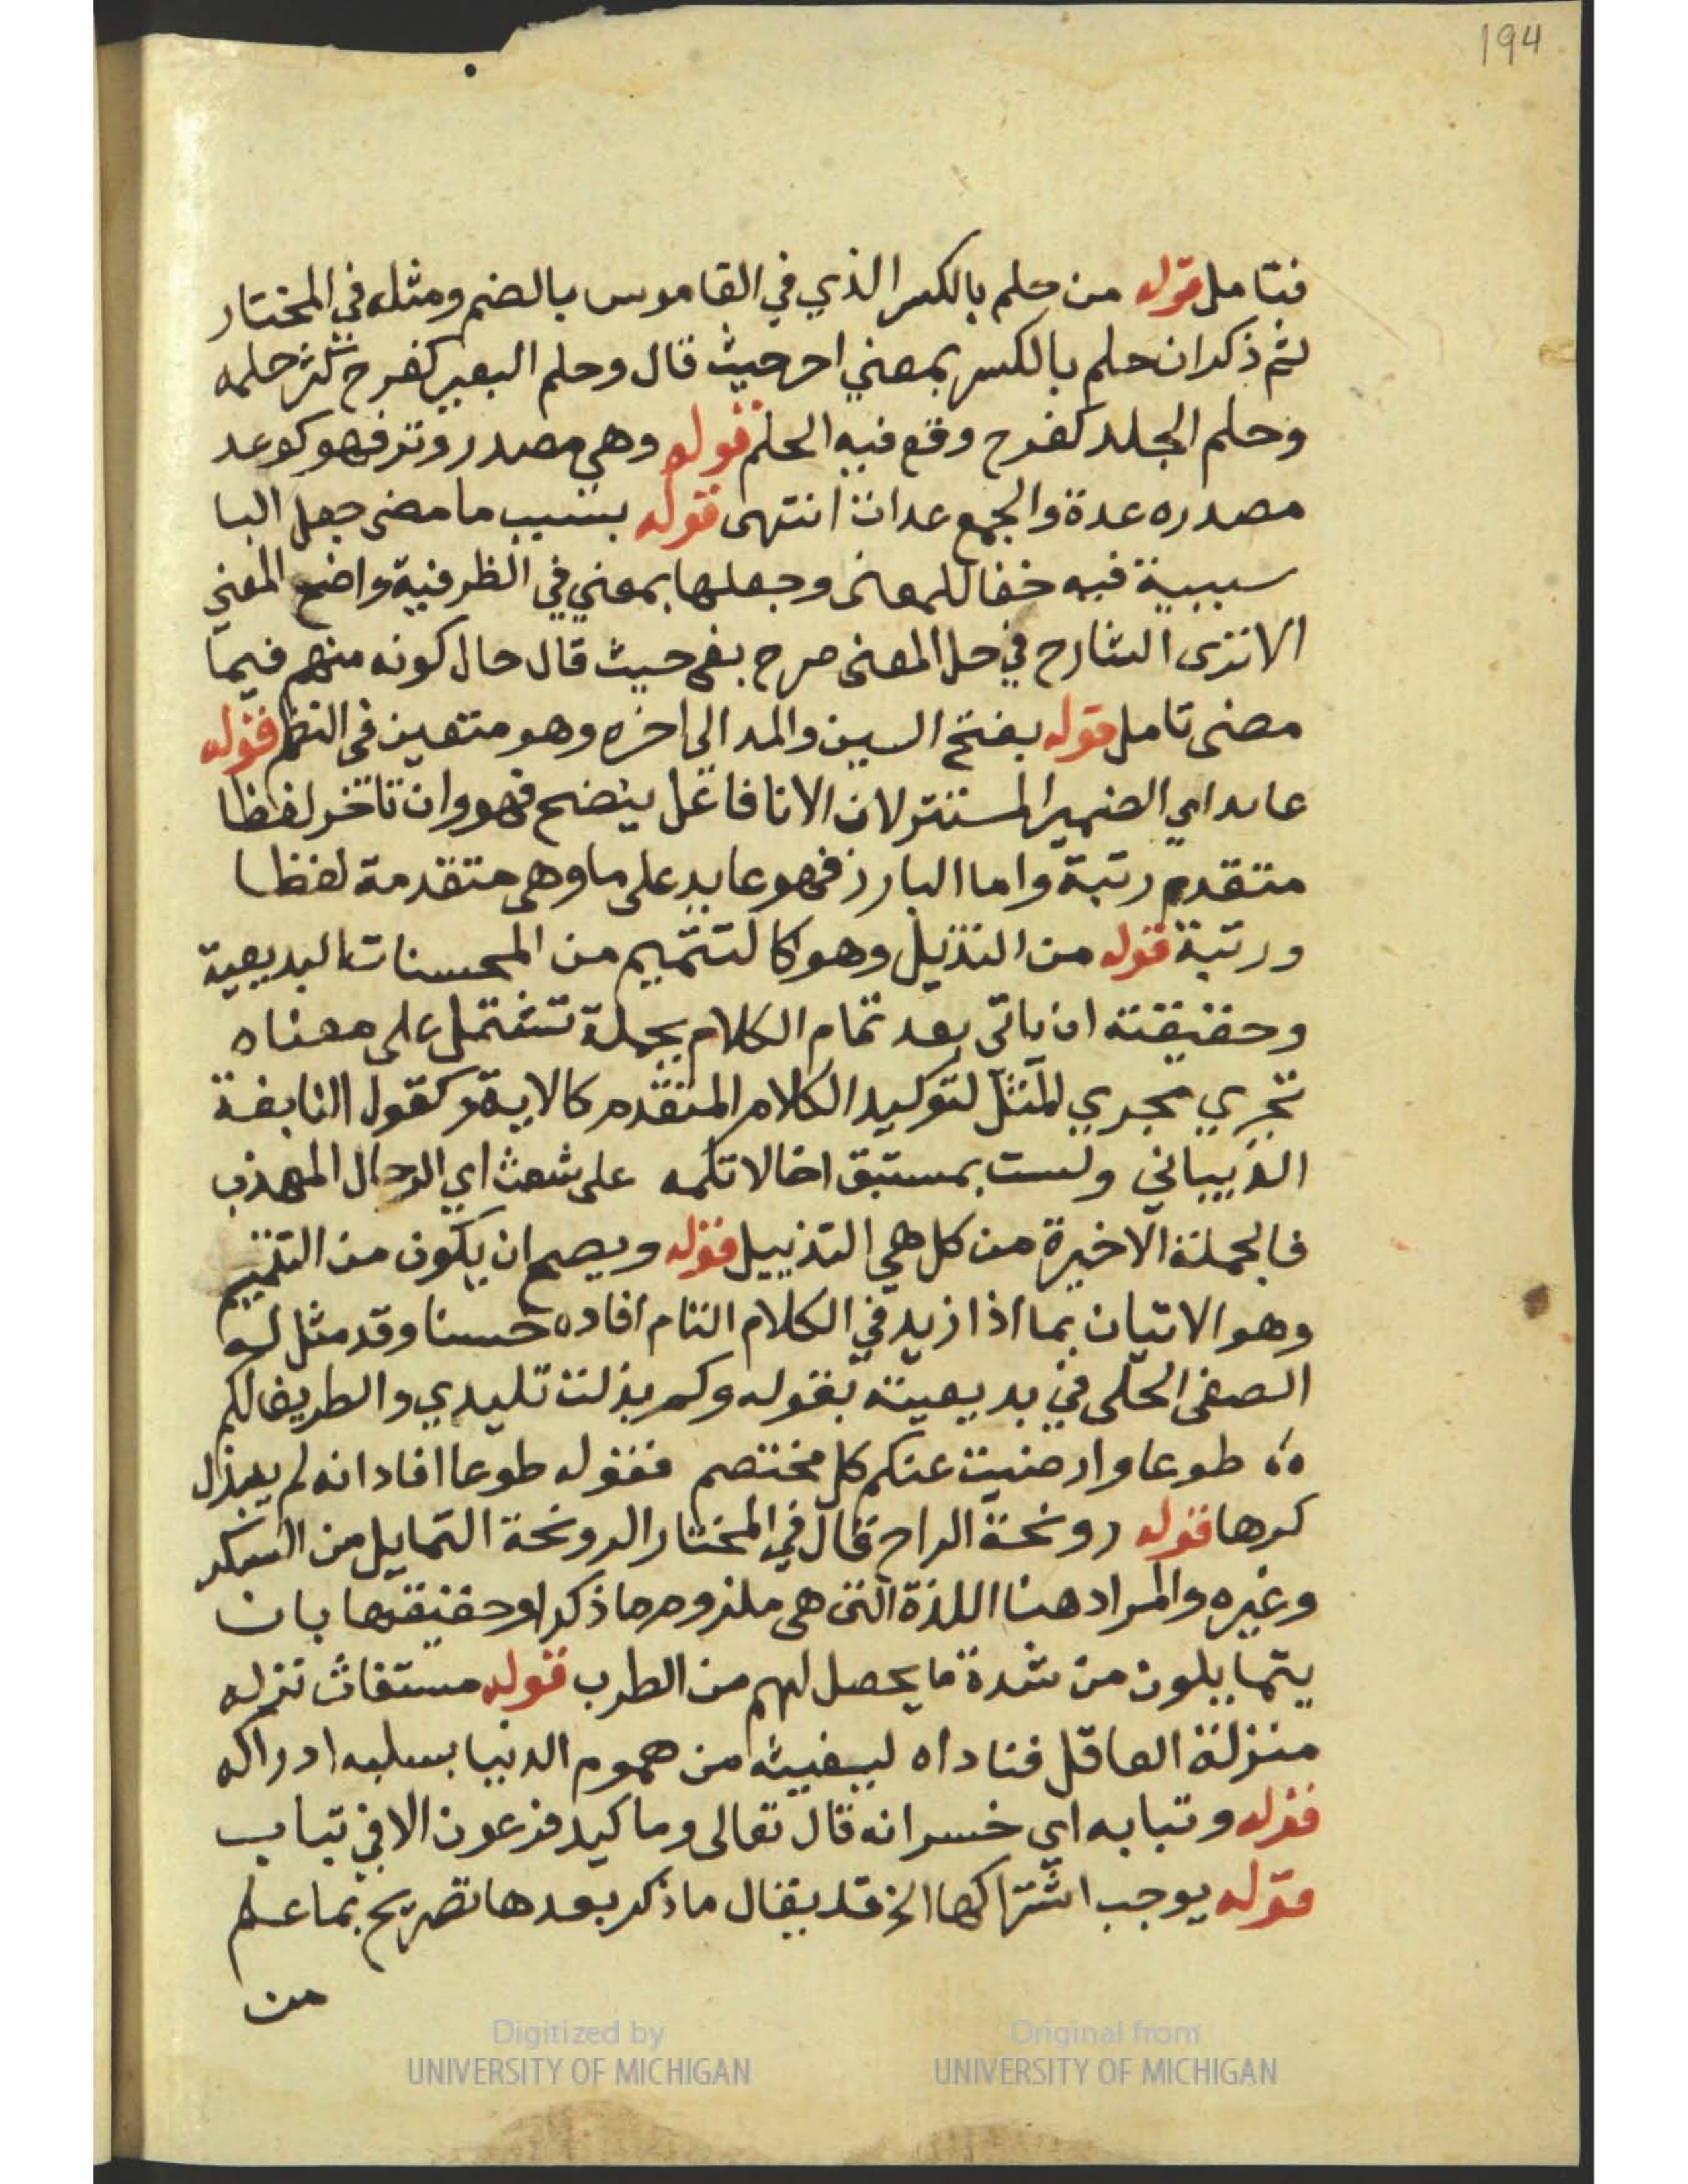 194
فتامل قوله من حلم بالكسر الذي في القاموس بالضم ومثله في المختار
ثم ذكر ان حلم بالكسر بمعني اخر حيث قال وحلم البعير كفرح كثر حلمه
وحلم الجلد كفرح وقع فيه الحلم قوله وهي مصدر وتر فهو كوعد
مصدره عدة والجمع عدات انتهى قوله بسبب ما مضى جعل البا
سببية فيه خفا للمعنى وجعلها بمعني في الظرفية واضح المعني
الا ترى الشارح في حل المعنى صرح بفي حيث قال حال كونه منهم فيما
مضى تامل قوله بفتح السين والمد الى اخره وهو متعين في النظم قوله
عايد اي الضمير المستتر لان الانا فاعل ينضح فهو وان تاخر لفظا
متقدم رتبة واما البارز فهو عايد على ما وهى متقدمة لفظا
ورتبة قوله من التذييل وهو كالتتميم من المحسنات البديعية
وحقيقته ان ياتى بعد تمام الكلام بجملة تشتمل على معناه
تجري مجري المثل لتوكيد الكلام المتقدم كالاية وكقول النابغة
الذبياني ولست بمستبق اخا لا تلمه على شعث اي الرجال المهذب
فالجملة الاخيرة من كل هي التذييل قوله ويصح ان يكون من التتميم
وهو الاتيان بما اذا زيد في الكلام التام افاده حسنا وقد مثل له
الصفى الحلى في بديعيته بقوله وكم بذلت تليدي والطريف لكم
طوعا وارضيت عنكم كل مختصم فقوله طوعا افاد انه لم يبذل
كرها قوله رونحة الراح قال في المختار الرونحة التمايل من السكر
وغيره والمراد هنا اللذة التى هى ملزوم ما ذكر او حقيقتها بان
يتمايلون من شدة ما يحصل لهم من الطرب قوله مستغاث نزله
منزلة العاقل فناداه ليغيثه من هموم الدنيا بسلبه ادراكه
قوله وتبابه اي خسرانه قال تعالى وما كيد فرعون الا في تباب
قوله يوجب اشتراكها الخ قد يقال ما ذكر بعدها تصريح بما علم
من
Digitized by
UNIVERSITY OF MICHIGAN
Original from
UNIVERSITY OF MICHIGAN